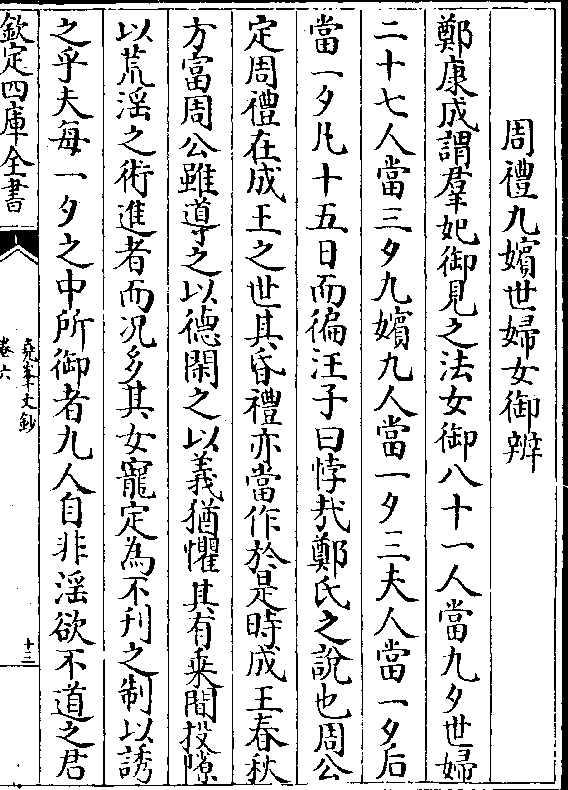 周禮九嬪世婦女御辨
鄭康成謂羣妃御見之法女御八十一人當九夕世婦
二十七人當三夕九嬪九人當一夕三夫人當一夕后
當一夕凡十五日而徧汪子曰悖哉鄭氏之說也周公
定周禮在成王之世其昏禮亦當作於是時成王春秋
方富周公雖導之以德閑之以義猶懼其有乗間投隙
以荒淫之術進者而况多其女寵定為不刋之制以誘
之乎夫每一夕之中所御者九人自非淫欲不道之君
欽定四庫全書
堯峯文鈔
卷六
十三